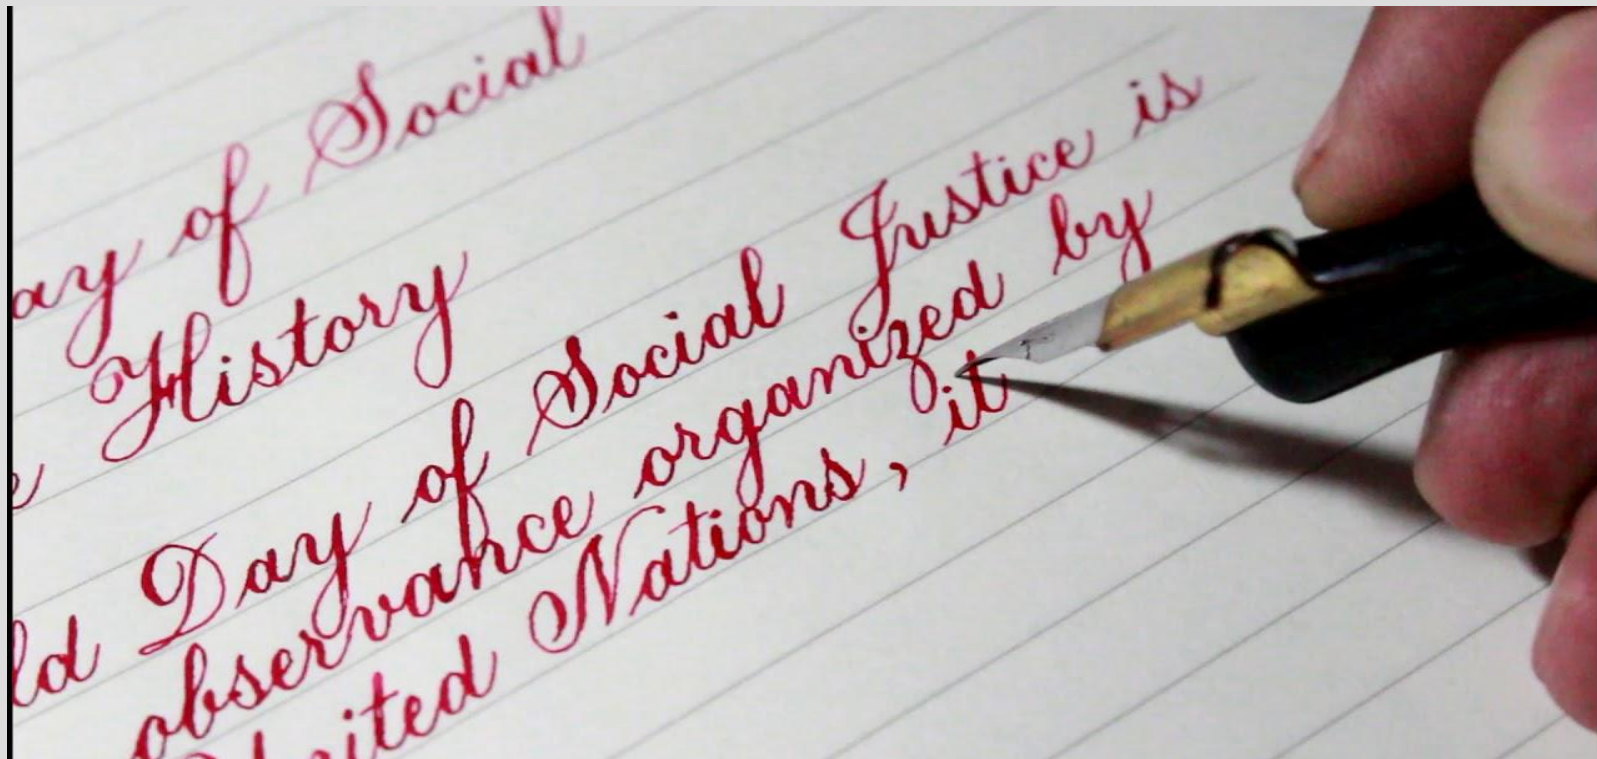 ay of Social
e History
ld Day of Social Justice is
observance organized by
United Nations, it